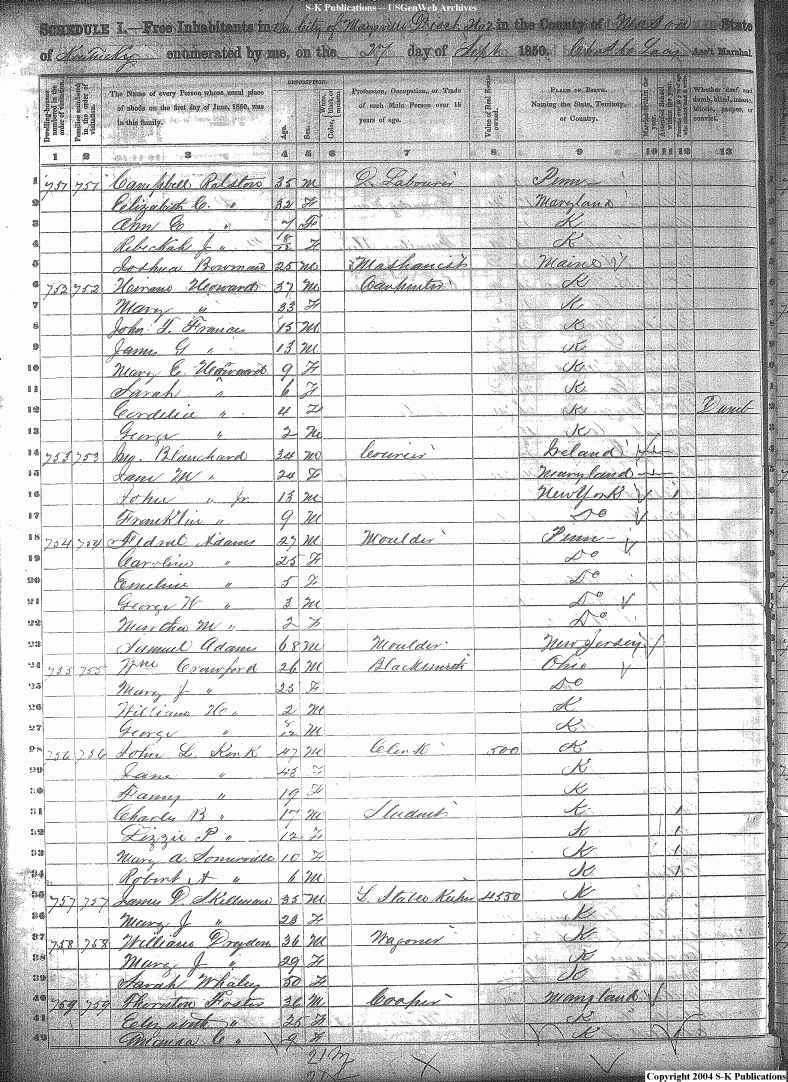 S-K Publications -- USGenWeb Archives
SCHEDULE I.—Free Inhabitants in the City of Maysville Disct No 2 in the County of Mason State
of Kentucky enumerated by me, on the 27 day of Sept 1850. Ass't Marshal.
DESCRIPTION.
Dwelling-houses numbered in the order of visitation.
Families numbered in the order of visitation.
The Name of every Person whose usual place of abode on the first day of June, 1850, was in this family.
Age.
Sex.
Color, White, black, or mulatto.
Profession, Occupation, or Trade of each Male Person over 15 years of age.
Value of Real Estate owned.
PLACE OF BIRTH. Naming the State, Territory, or Country.
Whether deaf and dumb, blind, insane, idiotic, pauper, or convict.
1 2 3 4 5 6 7 8 9 10 11 12 13
1 751 751 Campbell Ralston 35 M D. Labourer Penn
2 Elizabeth C. " 32 F Maryland
3 Ann E " 7 F K
4 Rebeckah J " 18/12 F K
5 Joshua Bowman 25 M Maine
6 752 752 Hiram Howard 37 M Carpenter K
7 Mary " 33 F K
8 John T. Francis 15 M K
9 James G " 13 M K
10 Mary E. Howard 9 F K
11 Sarah " 6 F K
12 Cordelia " 4 F K Dumb
13 George " 2 M K
14 753 753 Blanchard 34 M Ireland
15 Jane M " 24 F Maryland
16 John " Jr. 13 M New York
17 Franklin " 9 M Do
18 754 754 Adams 27 M Moulder Penn
19 Caroline " 25 F Do
20 Emeline " 5 F Do
21 George W " 3 M Do
22 Martha M " 2 F Do
23 Samuel Adams 68 M Moulder New Jersey
24 755 755 Wm Crawford 26 M Blacksmith Ohio
25 Mary J " 23 F Do
26 William H " 2 M K
27 George " 8/12 M K
28 756 756 John L. Kirk 47 M Clerk 500 K
29 Jane " 43 F K
30 Fanny " 19 F K
31 Charles B " 17 M Student K
32 Lizzie P " 12 F K
33 Mary A. Somerville 10 F K
34 Robert A " 6 M K
35 757 757 James D. Skillman 35 M L. Stable Keeper 4550 K
36 Mary J " 23 F K
37 758 758 William Dryden 36 M Wagoner K
38 Mary J " 29 F K
39 Sarah Whaley 50 F K
40 759 759 Thornton Foster 36 M Cooper Maryland
41 Elizabeth " 35 F K
42 Amanda C " 9 F K
21 M
Copyright 2004 S-K Publications